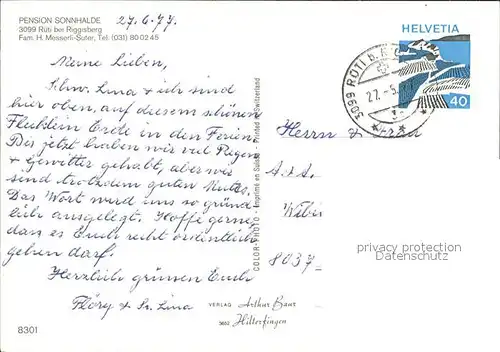 PENSION SONNHALDE
3099 Rüti bei Riggisberg
Fam. H. Messerli-Suter, Tel: (031) 80 02 45
27.6.77
Meine Lieben,
Schw. Lina & ich sind
hier oben, auf diesem schönen
Flecklein Erde in den Ferien.
Bis jetzt haben wir viel Regen
+ Gewitter gehabt, aber wir
sind trotzdem guten Mutes.
Das Wort wird uns so gründ
lich ausgelegt. Hoffe gerne,
dass es Euch recht ordentlich
gehen darf.
Herzlich grüssen Euch
Flöry & Sr. Lina
8301
COLOR-PHOTO - Imprimé en Suisse - Printed in Switzerland
VERLAG Arthur Baur
3652 Hilterfingen
HELVETIA
40
3099 RÜTI b.
27.-5.
Herrn & Frau
8037
privacy protection
Datenschutz